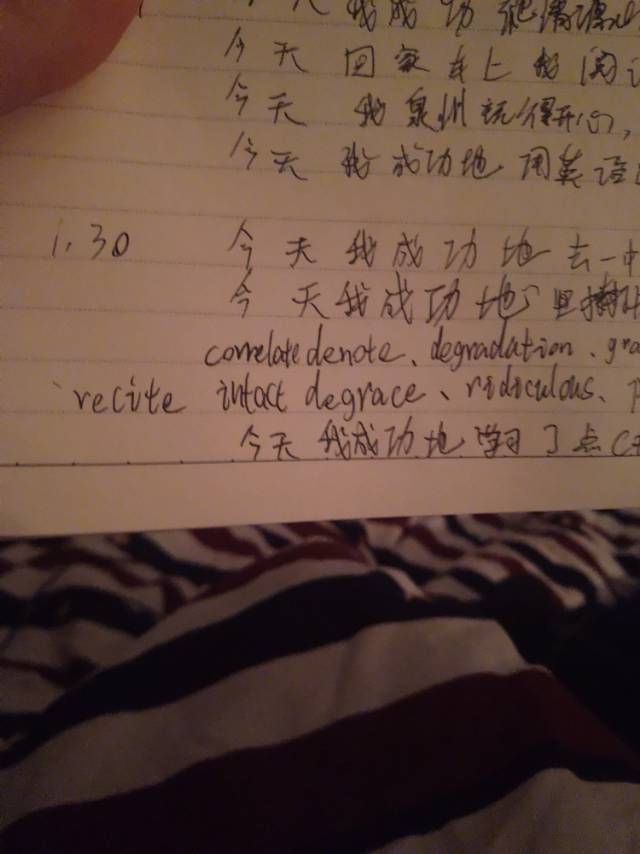 天 我成功
今天 回家车上我阅
今天 我泉州
今天 我成功地 用英语
1.30 今天我成功地去一中
今天我成功地
correlate denote、degradation、gra
recite intact degrace、ridiculous、
今天 我成功地 学习了点C